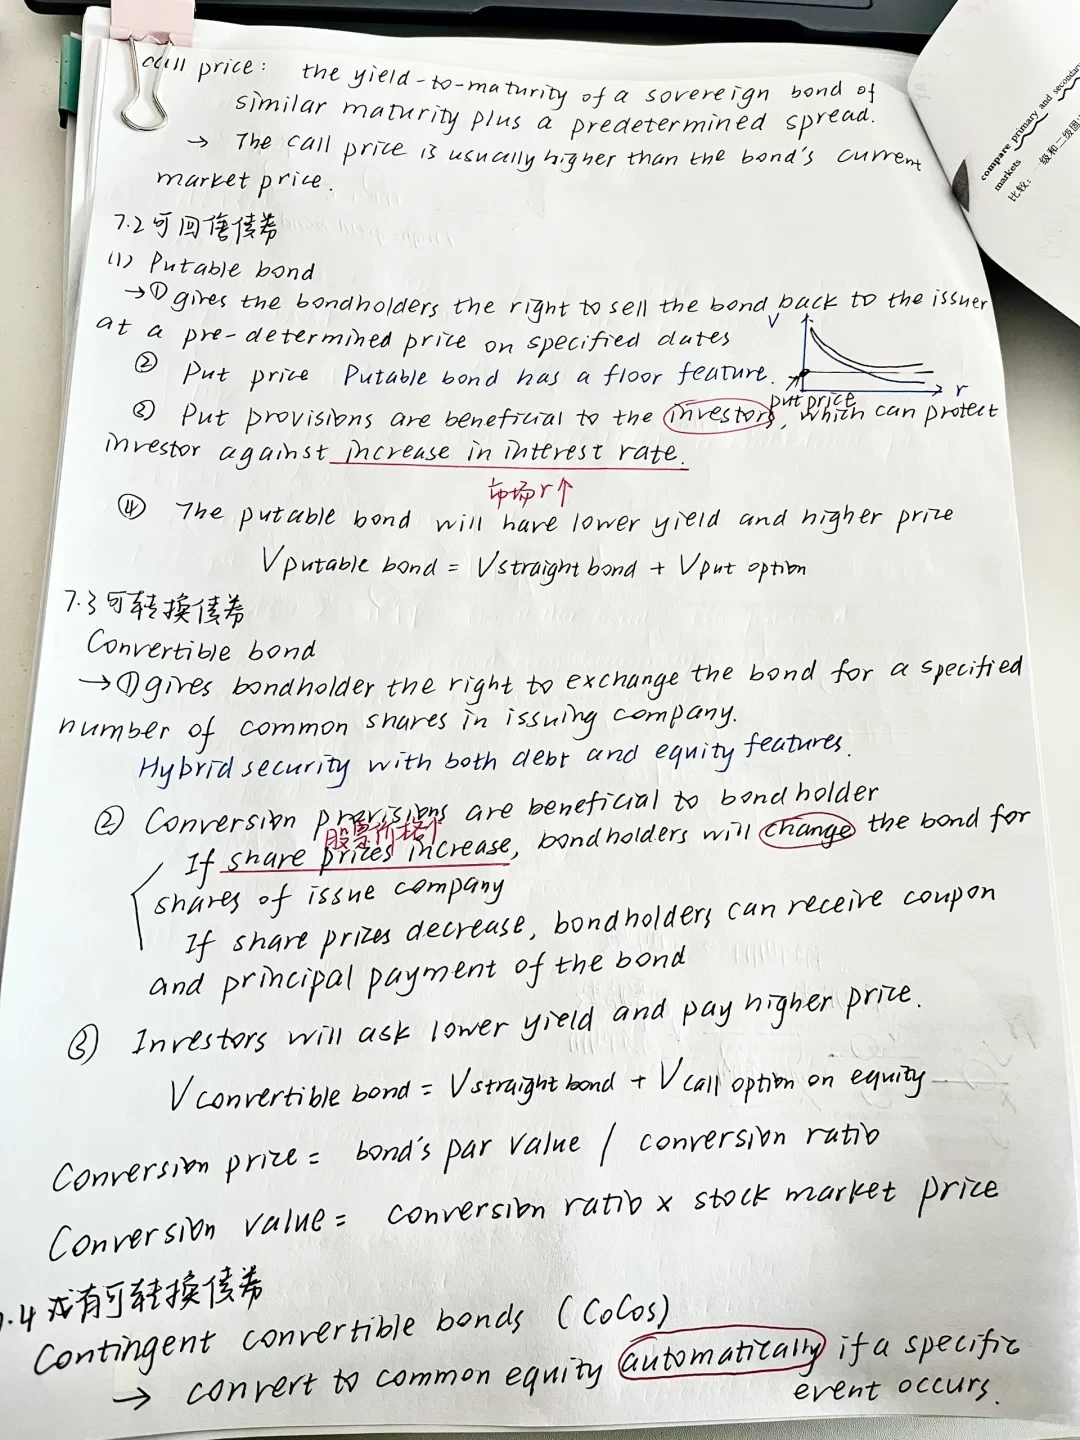 call price: the yield-to-maturity of a sovereign bond of
similar maturity plus a predetermined spread.
→ The call price is usually higher than the bond's current
market price.
7.2 可回售债券
(1) Putable bond
→① gives the bondholders the right to sell the bond back to the issuer
at a pre-determined price on specified dates
② Put price Putable bond has a floor feature.
V
r
put price
③ Put provisions are beneficial to the investors, which can protect
investor against increase in interest rate.
市场r↑
④ The putable bond will have lower yield and higher price
Vputable bond = Vstraight bond + Vput option
7.3 可转换债券
Convertible bond
→① gives bondholder the right to exchange the bond for a specified
number of common shares in issuing company.
Hybrid security with both debt and equity features.
② Conversion provisions are beneficial to bondholder
股票价格↑
If share prices increase, bondholders will change the bond for
shares of issue company
If share prices decrease, bondholders can receive coupon
and principal payment of the bond
③ Investors will ask lower yield and pay higher price.
Vconvertible bond = Vstraight bond + Vcall option on equity
Conversion price = bond's par value / conversion ratio
Conversion value = conversion ratio × stock market price
7.4 或有可转换债券
Contingent convertible bonds (CoCos)
→ convert to common equity automatically if a specific
event occurs.
compare primary and secondary
markets
比较: 一级和二级